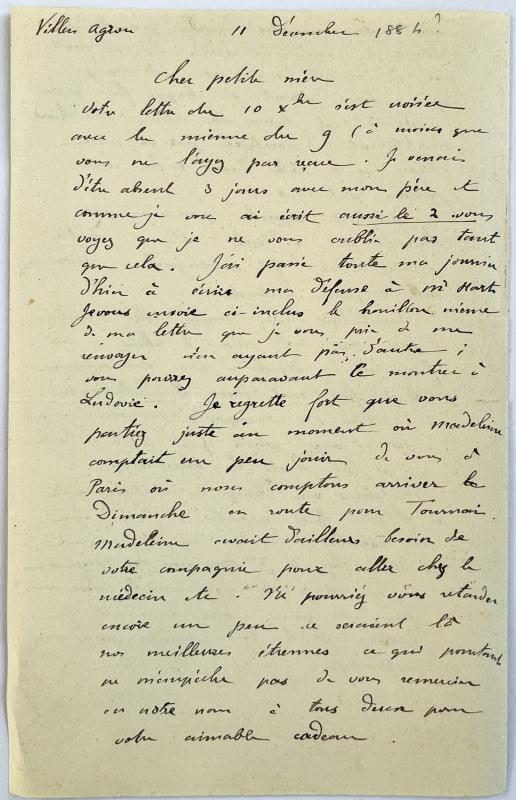 Villers Agron 11 Décembre 1884 ?
Cher petite mère
Votre lettre du 10 Xbre s'est croisée
avec la mienne du 9 (à moins que
vous ne l'ayez pas reçue. Je venais
d'être absent 3 jours avec mon père et
comme je vous ai écrit aussi le 2 vous
voyez que je ne vous oublie pas tant
que cela. J'ai passé toute ma journée
d'hier à écrire ma défense à Mr
Je vous envoie ci-inclus le brouillon même
de ma lettre que je vous prie de me
renvoyer n'en ayant pas d'autre ;
vous pouvez auparavant le montrer à
Ludovic. Je regrette fort que vous
partiez juste au moment où Madeleine
comptait un peu jouir de vous à
Paris où nous comptons arriver le
Dimanche en route pour Tournai.
Madeleine avait d'ailleurs besoin de
votre compagnie pour aller chez le
médecin etc. Ne pourriez vous retarder
encore un peu ce seraient là
nos meilleures étrennes ce qui pourtant
ne m'empêche pas de vous remercier
en notre nom à tous deux pour
votre aimable cadeau.